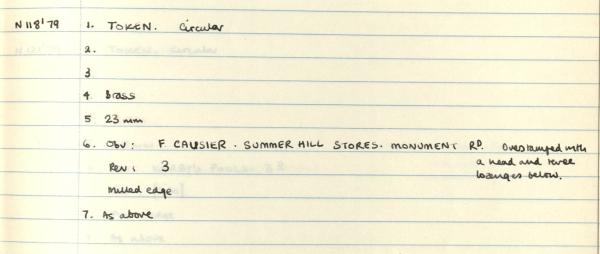 N118'79 1. TOKEN. Circular
2.
3
4. Brass
5 23 mm
6. Obv: F CAUSIER. SUMMER HILL STORES. MONUMENT RD. Overstamped with
a head and three
lozenges below.
Rev: 3
Milled edge
7. As above